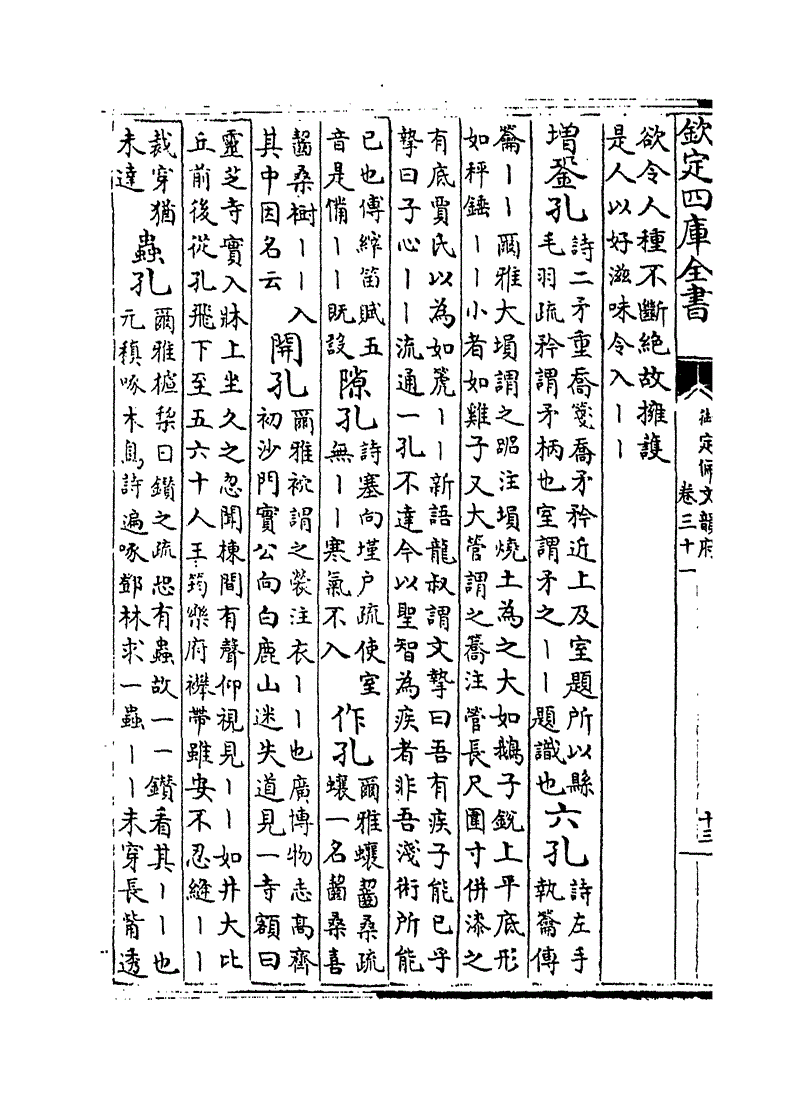 欽定四庫全書
御定佩文韻府
卷三十一
十三
欲令人種不斷絶故擁護
是人以好滋味令入丨丨
增銎孔詩二矛重喬箋喬矛矜近上及室題所以縣
毛羽疏矜謂矛柄也室謂矛之丨丨題識也六孔詩左手
執籥傳
籥丨丨爾雅大塤謂之嘂注塤燒土為之大如鵝子銳上平底形
如秤錘丨丨小者如雞子又大管謂之簥注管長尺圍寸併漆之
有底賈氏以為如篪丨丨新語龍叔謂文摯曰吾有疾子能已乎
摯曰子心丨丨流通一孔不達今以聖智為疾者非吾淺術所能
已也傅縡笛賦五
音是備丨丨既設隙孔詩塞向墐户疏使室
無丨丨寒氣不入作孔爾雅蠰齧桑疏
蠰一名齧桑喜
齧桑樹丨丨入
其中因名云開孔爾雅裗謂之裻注衣丨丨也廣博物志高齊
初沙門寳公向白鹿山迷失道見一寺額曰
靈芝寺實入牀上坐久之忽聞棟間有聲仰視見丨丨如井大比
丘前後從孔飛下至五六十人王筠樂府襻帶雖安不忍縫丨丨
裁穿猶
未達蟲孔爾雅樝棃曰鑽之疏恐有蟲故一一鑽看其丨丨也
元稹啄木鳥詩遍啄鄧林求一蟲丨丨未穿長觜透